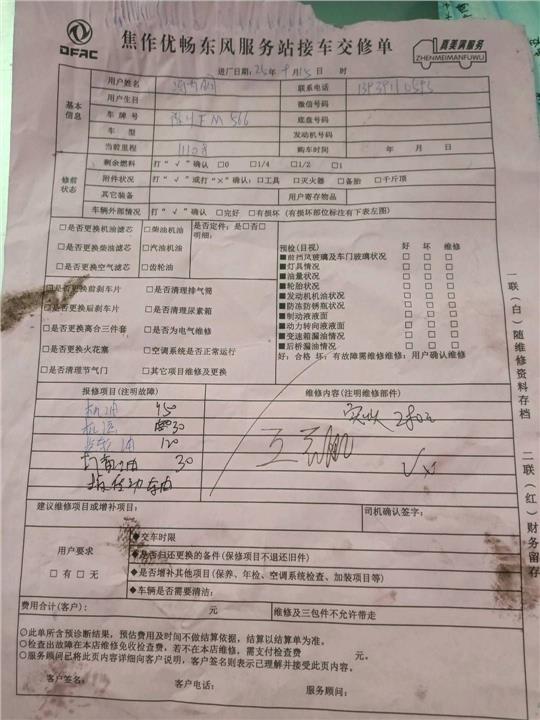 DFAC
焦作优畅东风服务站接车交修单
真美满服务
ZHENMEIMANFUWU
进厂日期: 年 月 15日 时
基本信息
用户姓名 联系电话
用户生日 微信号码
车牌号 FM566 底盘号码
车型 发动机号码
当前里程 购车时间 年 月 日
修前状态
剩余燃料 打“√”确认 □0 □1/4 □1/2 □1
附件状况 打“√”或打“×”确认:□工具 □灭火器 □备胎 □千斤顶
其它装备 用户寄存物品
车辆外部情况 打“√”确认 □完好 □有损坏 (有损坏部位标注有下表左图)
□是否更换机油滤芯 □柴油机油
□是否更换柴油滤芯 □汽油机油
□是否更换空气滤芯 □齿轮油
是否定件:是□否□
明细:
□是否更换前刹车片 □是否清理排气筒
□是否更换后刹车片 □是否清理尿素箱
□是否更换离合三件套 □是否为电气维修
□是否更换火花塞 □空调系统是否正常运行
□是否清理节气门 □其它项目维修及更换
预检(目视) 好 坏 维修
■前挡风玻璃及车门玻璃状况 □ □ □
■灯具情况 □ □ □
■油量状况 □ □ □
■轮胎状况 □ □ □
■发动机机油状况 □ □ □
■防冻防锈瓶状况 □ □ □
■制动液液面 □ □ □
■动力转向液液面 □ □ □
■变速箱漏油情况 □ □ □
■后桥漏油情况 □ □ □
好:合格 坏:有故障需维修维修:用户确认维修
报修项目(注明故障) 维修内容(注明维修部件)
机油
30
油 120
打黄油 30
建议维修项目或增补项目: 司机确认签字:
用户要求
□有□无
◆交车时限
◆是否归还更换的备件(保修项目不退还旧件)
◆是否增补其他项目(保养、年检、空调系统检查、加装项目等)
◆车辆是否需要清洁:
费用合计(客户): 元 维修及三包件不允许带走
◎此单所含预诊断结果,预估费用及时间不做结算依据,结算以结算单为准。
●检查出故障在本店维修免收检查费,若不在本店维修,需支付检查费 元。
●服务顾问已将此页内容详细向客户说明,客户签名则表示已理解并接受此页内容。
客户签名: 客户电话: 服务顾问:
一联(白)随维修资料存档
二联(红)财务留存